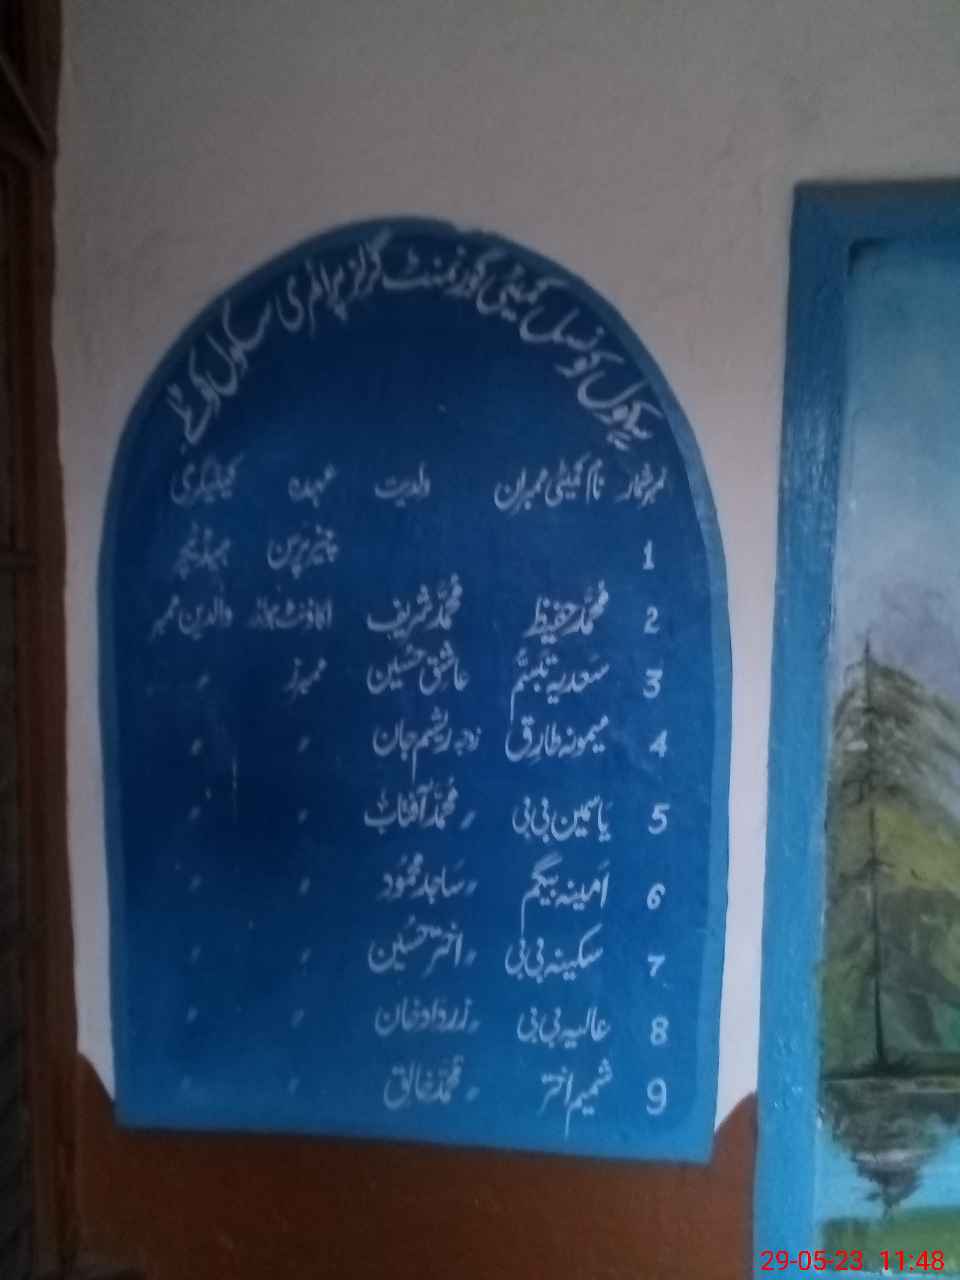 سکول کونسل کمیٹی گورنمنٹ گرلز پرائمری سکول
نمبر شمار نام کمیٹی ممبران ولدیت عہدہ کیٹیگری
1 چیئر پرسن ہیڈ ٹیچر
2 محمد حفیظ محمد شریف والدین ممبر
3 سعدیہ تبسم عاشق حسین ممبرز 〃
4 میمونہ طارق زوجہ ریشم جان 〃 〃
5 یاسمین بی بی 〃 محمد آفتاب 〃 〃
6 امینہ بیگم 〃 ساجد محمود 〃 〃
7 سکینہ بی بی 〃 اختر حسین 〃 〃
8 عالیہ بی بی 〃 زرداد خان 〃 〃
9 شمیم اختر 〃 محمد خالق 〃 〃
29-05-23 11:48